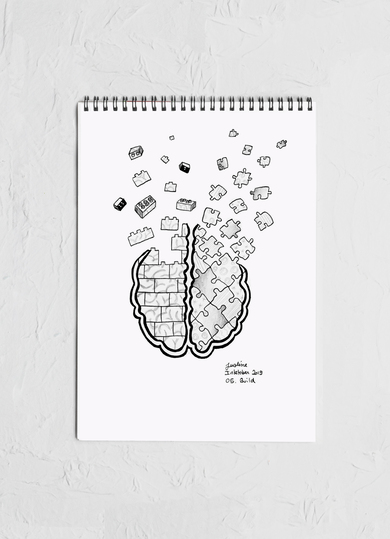 Justine
Inktober 2019
05. Build